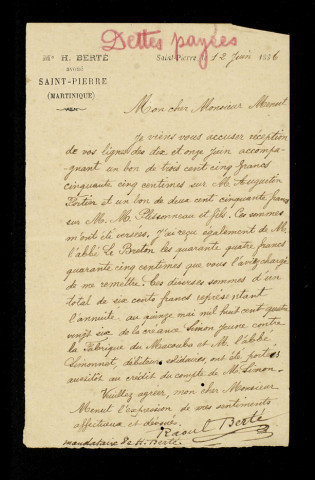 Dettes payées
Me H. BERTÉ
avoué
SAINT-PIERRE
(MARTINIQUE)
Saint-Pierre, le 12 Juin 1886
Mon cher Monsieur
Je viens vous accuser réception
de vos lignes des dix et onze Juin accompa-
gnant un bon de trois cent cinq francs
cinquante cinq centimes sur M. Augustin
Portier et un bon de deux cent cinquante francs
sur M. M. Plissonneau et fils. Ces sommes
m'ont été versées. J'ai reçu également de M.
l'abbé Le Breton les quarante quatre francs
quarante cinq centimes que vous l'aviez chargé
de me remettre. Ces diverses sommes d'un
total de six cents francs représentant
l'annuité au quinze mai mil huit cent quatre
vingt six de la créance Simon jeune contre
la Fabrique du Macouba et M. l'abbé
Simonnet, débiteurs solidaires, ont été portées
aussitôt au crédit du compte de Mr Simon.
Veuillez agréer, mon cher Monsieur
l'expression de mes sentiments
affectueux et dévoués.
Raoul Berté
mandataire de H. Berté